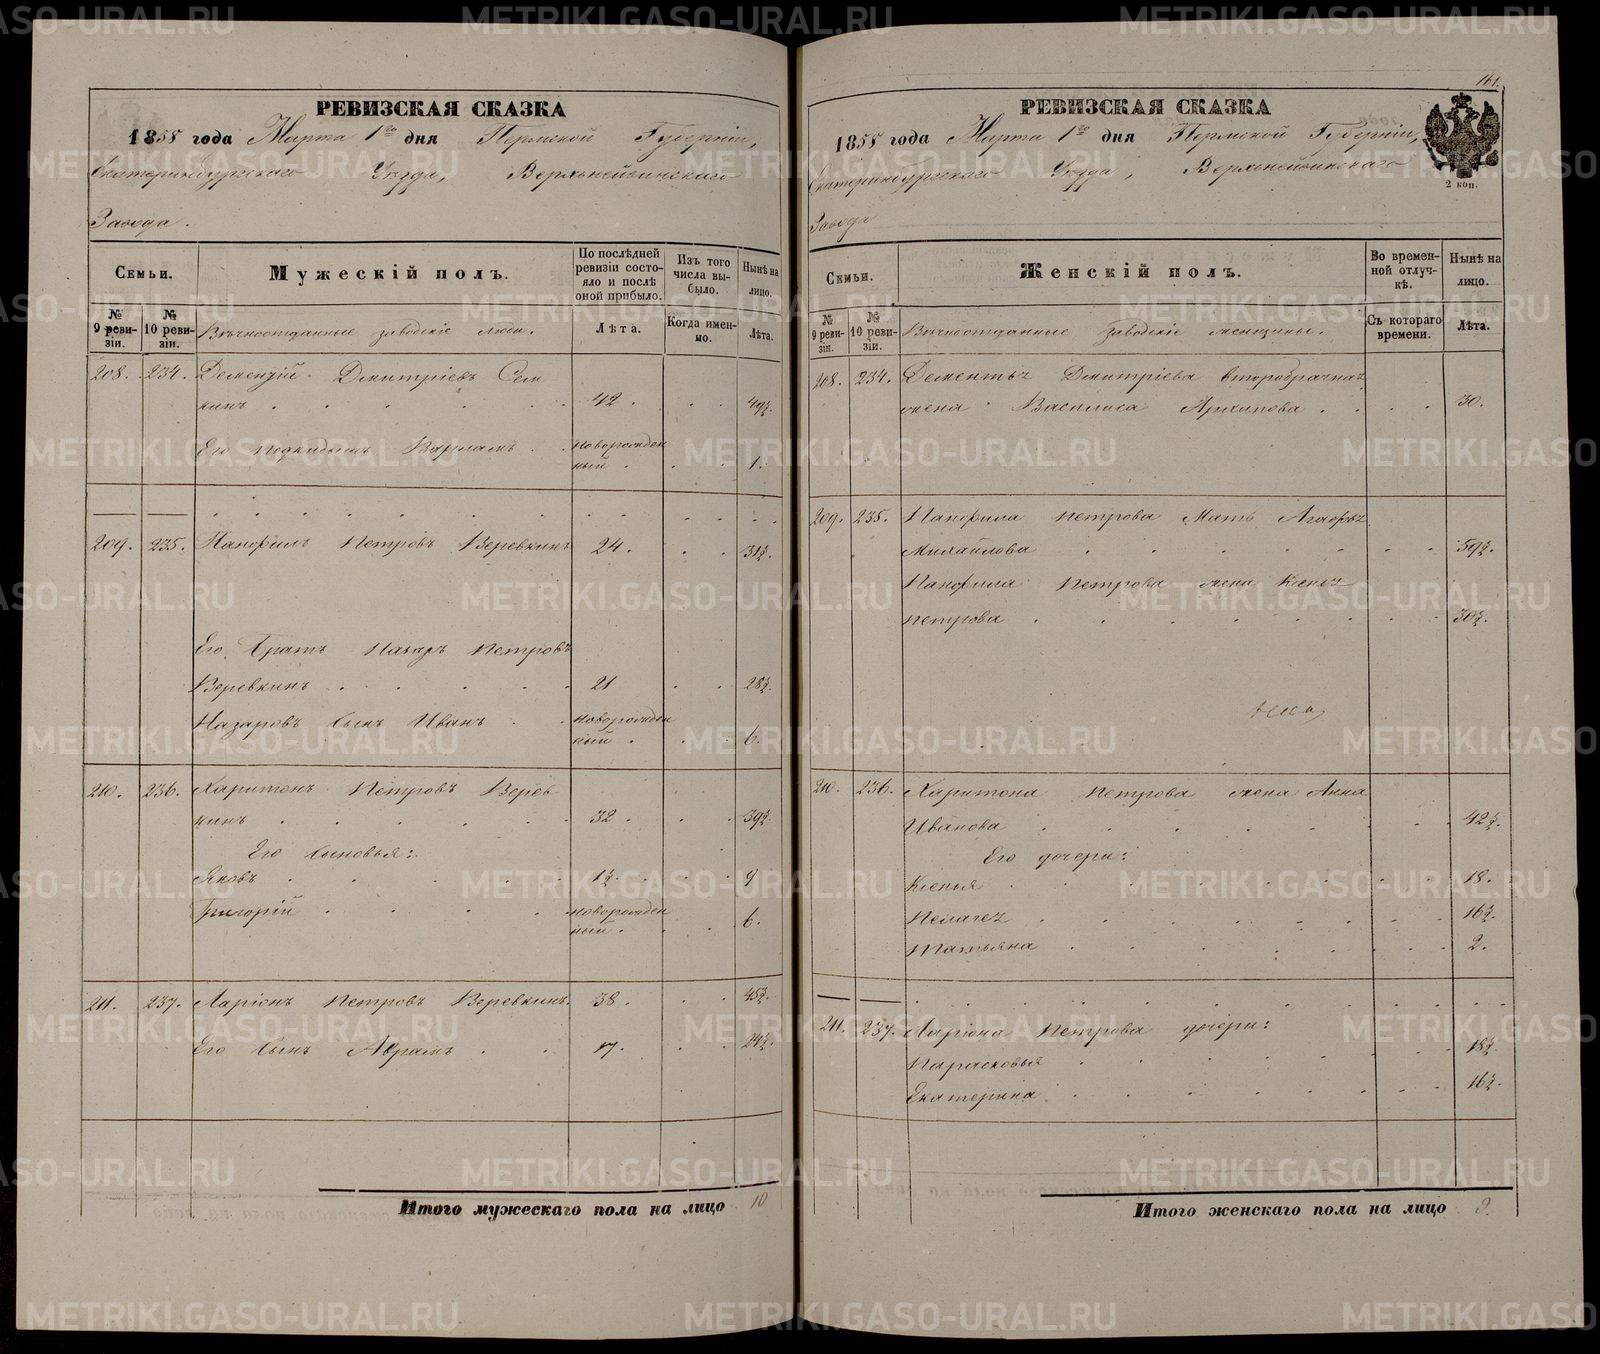 РЕВИЗСКАЯ СКАЗКА
1858 года Марта 1го дня Пермской Губерніи,
Екатеринбургскаго Уѣзда, Верхнейвинскаго
Завода.
Семьи.
Мужескій полъ.
По послѣдней ревизіи состояло и послѣ оной прибыло.
Изъ того числа выбыло.
Нынѣ на лицо.
№ 9 ревизіи.
№ 10 ревизіи.
Вѣчноотданные заводскіе люди.
Лѣта.
Когда именно.
Лѣта.
208. 234. Дементій Дмитріевъ Сем
кинъ 42 49½.
Его подкидышъ Варламъ новорожден
ный 1.
209. 235. Панфилъ Петровъ Веревкинъ 24. 31½.
Его Братъ Назаръ Петровъ
Веревкинъ 21 28½.
Назаровъ сынъ Иванъ новорожден
ный 6.
210. 236. Харитонъ Петровъ Верев
кинъ 32. 39½.
Его сыновья:
Яковъ 1½. 9
Григорій новорожден
ный 6.
211. 237. Ларіонъ Петровъ Веревкинъ. 38. 45½.
Его сынъ Аврамъ 17. 24½.
Итого мужескаго пола на лицо 10
161.
РЕВИЗСКАЯ СКАЗКА
1858 года Марта 1го дня Пермской Губерніи,
Екатеринбургскаго Уѣзда, Верхнейвинскаго
Завода
2 коп.
Семьи.
Женскій полъ.
Во временной отлучкѣ.
Нынѣ на лицо.
№ 9 ревизіи.
№ 10 ревизіи.
Вѣчноотданные заводскіе женщины.
Съ котораго времени.
Лѣта.
208. 234. Дементья Дмитріева второбрачная
жена Василиса Архипова 30.
209. 235. Панфила Петрова Мать
Михайлова 59½.
Панфила Петрова жена Ксенья
Петрова 30½.
210. 236. Харитона Петрова жена Анна
Иванова 42½.
Его дочери:
Ксенья 18.
Пелагея 16½.
Татьяна 2.
211. 237. Ларіона Петрова дочери:
Парасковья 18½.
Екатерина 16½.
Итого женскаго пола на лицо 9.
METRIKI.GASO-URAL.RU